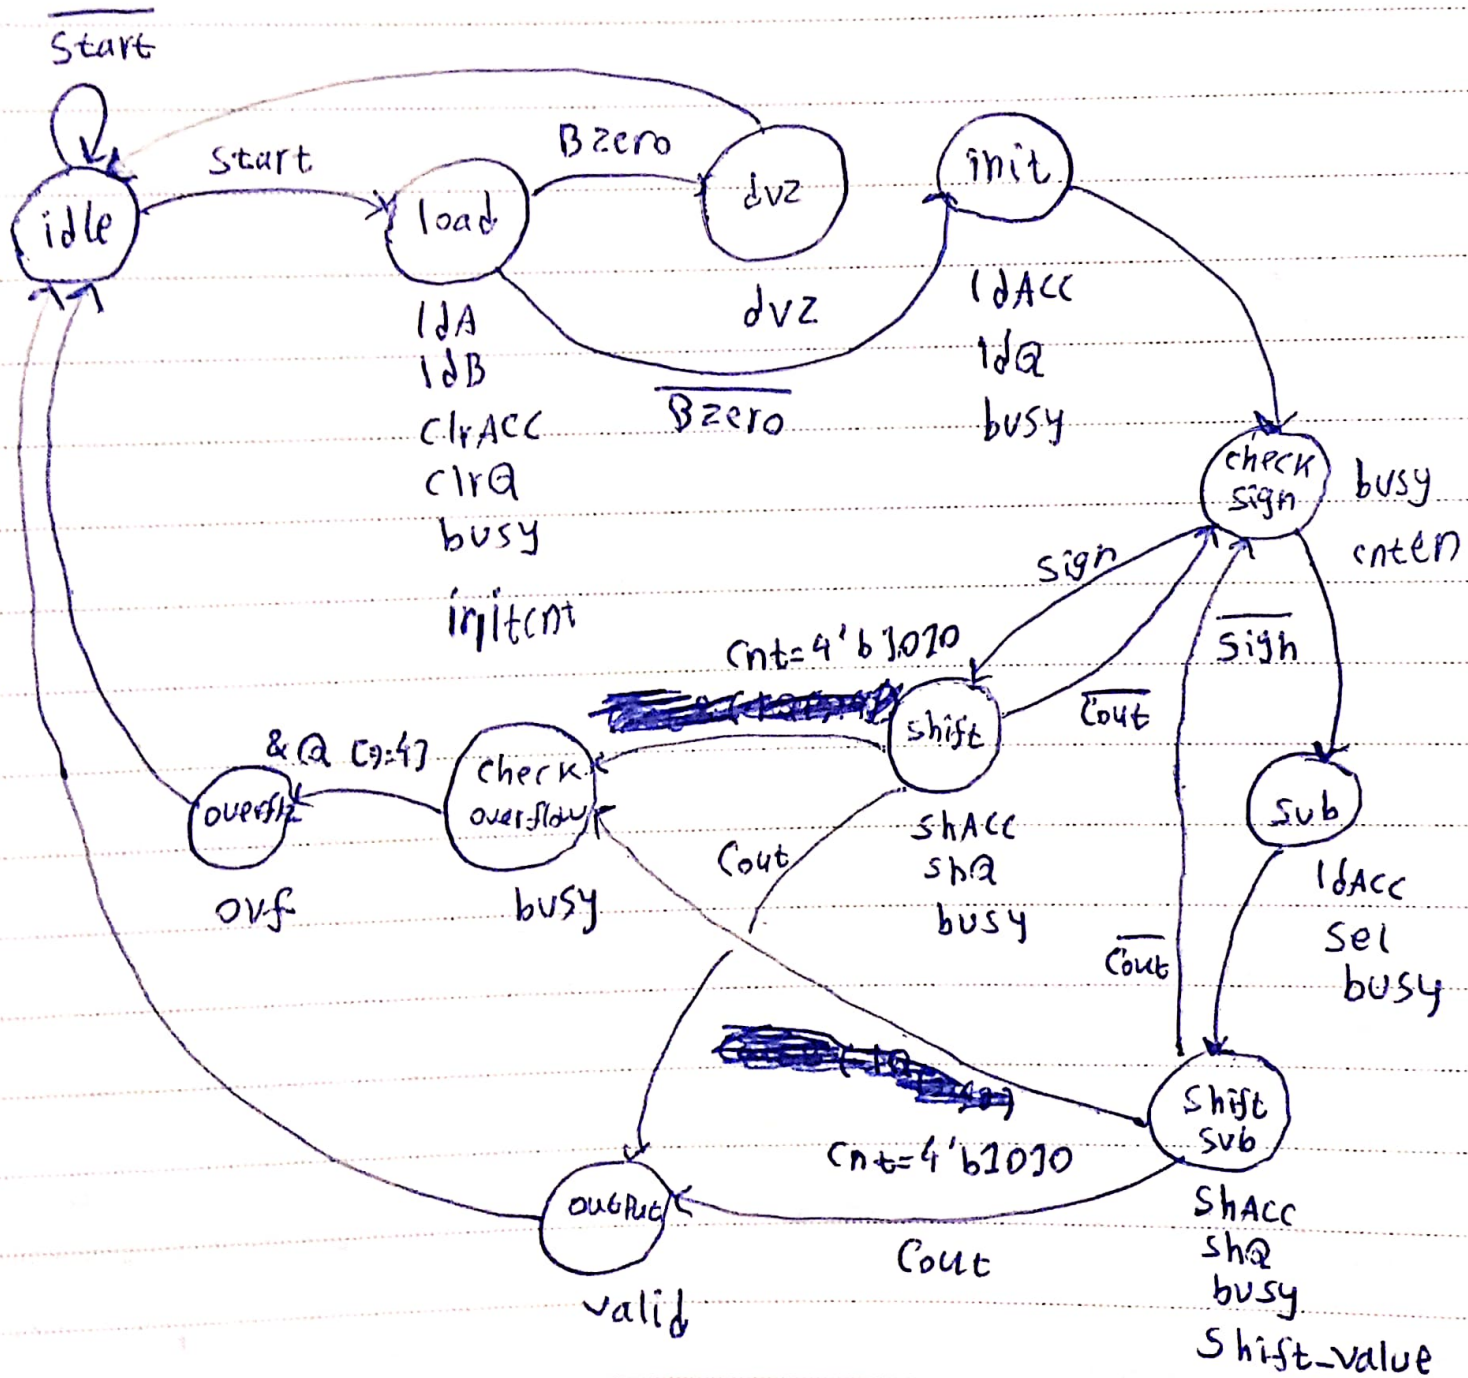 Start
Start
idle
load
Bzero
dvz
init
ldA
ldB
clrACC
clrQ
busy
initcnt
dvz
Bzero
ldACC
ldQ
busy
check
sign
busy
cnten
sign
sign
Cnt=4'b1010
shift
Cout
shACC
shQ
busy
sub
ldACC
sel
busy
&Q [9:4]
check
overflow
busy
ovf
Cout
Cout
Shift
sub
ShACC
shQ
busy
Shift_value
Cnt=4'b1010
output
valid
Cout